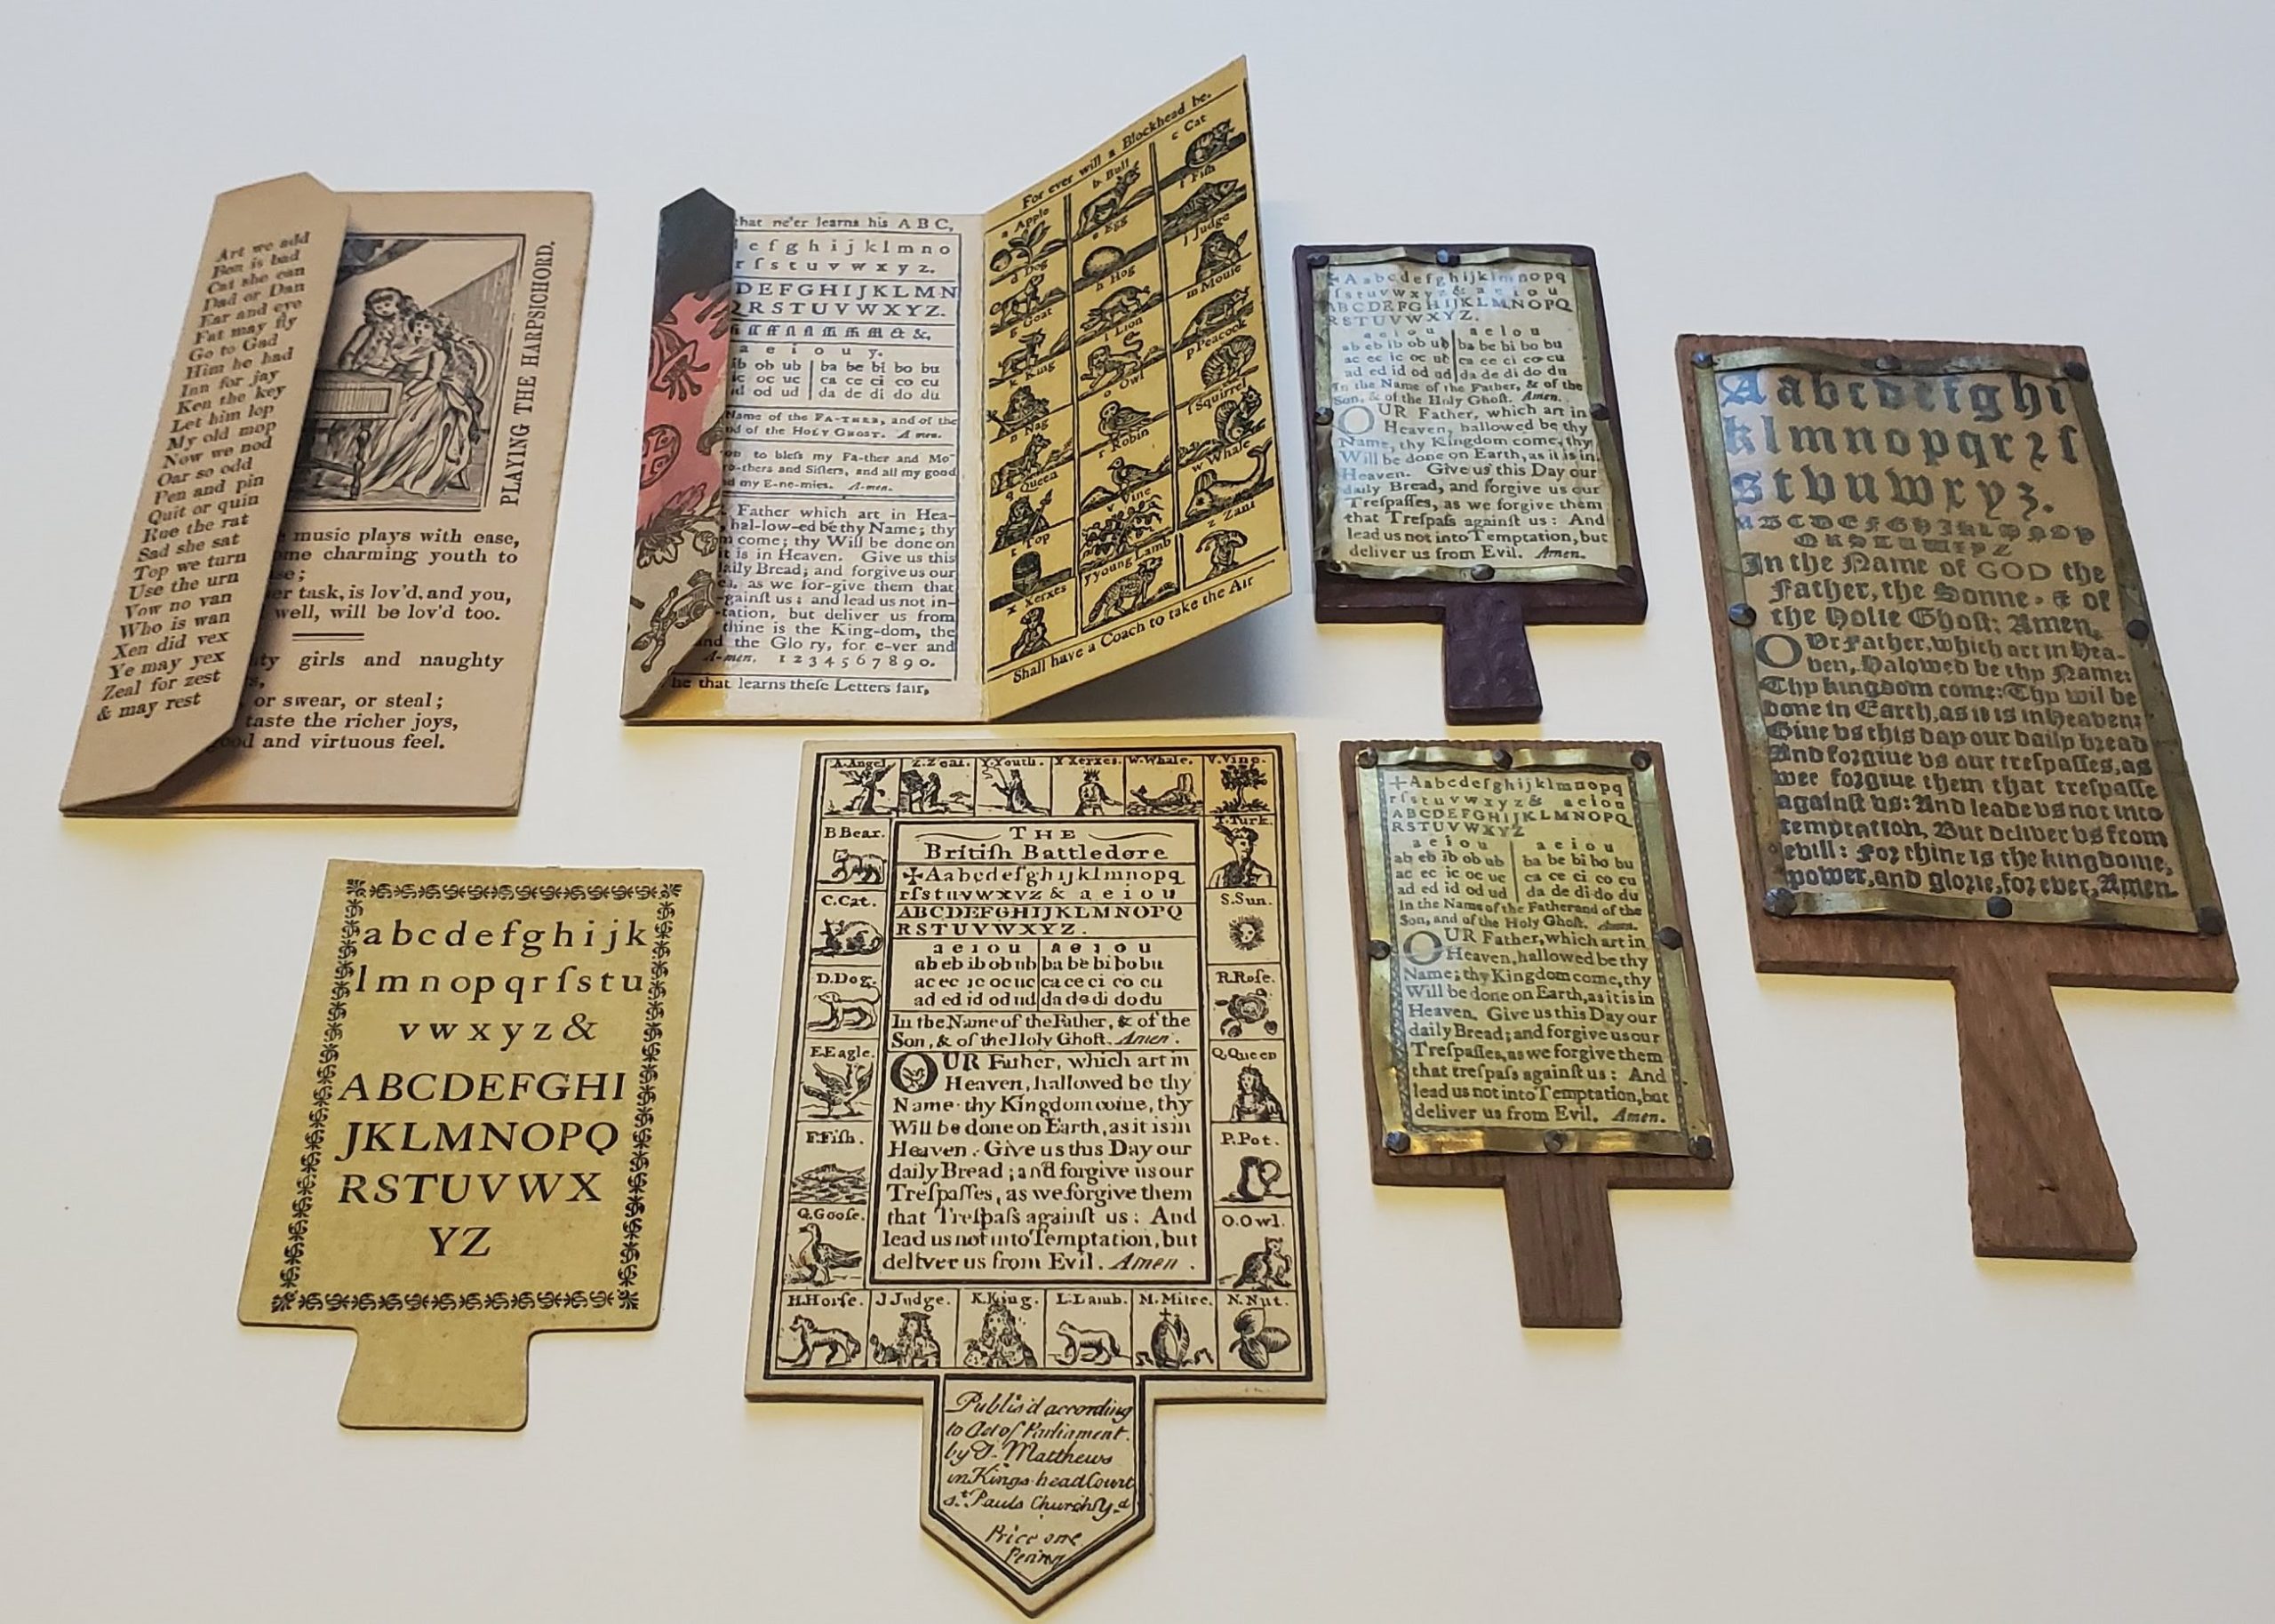 Art we add
Ben is bad
Cat she can
Dad or Dan
Ear and eye
Fat may fly
Go to Gad
Him he had
Inn for jay
Ken the key
Let him lop
My old mop
Now we nod
Oar so odd
Pen and pin
Quit or quin
Rue the rat
Sad she sat
Top we turn
Use the urn
Vow no van
Who is wan
Xen did vex
Ye may yex
Zeal for zest
& may rest
PLAYING THE HARPSICHORD.
music plays with ease,
charming youth to
task, is lov'd, and you,
well, will be lov'd too.
girls and naughty
or swear, or steal;
taste the richer joys,
and virtuous feel.
that ne'er learns his A B C,
e f g h i j k l m n o
r ſ s t u v w x y z.
DEFGHIJKLMN
QRSTUVWXYZ.
a e i o u y.
ib ob ub ba be bi bo bu
ic oc uc ca ce ci co cu
id od ud da de di do du
Name of the FA-THER, and of the
of the HOLY GHOST. A men.
to bleſs my Fa-ther and Mo-
ro-thers and Siſters, and all my good
my E-ne-mies. A-men.
Father which art in Hea-
hal-low-ed be thy Name; thy
come; thy Will be done on
it is in Heaven. Give us this
daily Bread; and forgive us our
as we for-give them that
gainſt us: and lead us not in-
tation, but deliver us from
thine is the King-dom, the
and the Glo ry, for e-ver and
A-men. 1 2 3 4 5 6 7 8 9 0.
he that learns theſe Letters fair,
For ever will a Blockhead be.
a Apple
b Bull
c Cat
d Dog
e Egg
f Fiſh
g Goat
h Hog
J Judge
k King
l Lion
m Mouſe
n Nag
o Owl
p Peacock
q Queen
r Robin
ſ Squirrel
t Top
Vine
w Whale
x Xerxes
y young Lamb
z Zani
Shall have a Coach to take the Air
Aabcdefghijklmnopq
rſstuvwxyz& a e i o u
ABCDEFGHIJKLMNOPQ
RSTUVWXYZ.
a e i o u a e i o u
ab eb ib ob ub ba be bi bo bu
ac ec ic oc uc ca ce ci co cu
ad ed id od ud da de di do du
In the Name of the Father, & of the
Son, & of the Holy Ghoſt. Amen.
OUR Father, which art in
Heaven, hallowed be thy
Name, thy Kingdom come, thy
Will be done on Earth, as it is in
Heaven. Give us this Day our
daily Bread, and forgive us our
Treſpaſſes, as we forgive them
that Treſpaſs againſt us: And
lead us not into Temptation, but
deliver us from Evil. Amen.
Aabcdefghi
klmnopqrꝛſ
stvuwxyz.
ABCDEFGHIJKLMNOP
QRSTUWXYZ
In the Name of GOD the
Father, the Sonne, & of
the Holie Ghoſt: Amen.
OUr Father, which art in Hea-
ven, Halowed be thy Name:
Thy kingdom come: Thy wil be
done in Earth, as it is in heaven:
Giue vs this day our daily bread
And forgiue vs our treſpaſſes, as
wee forgiue them that treſpaſſe
againſt vs: And leade vs not into
temptation, But deliver vs from
evill: For thine is the kingdome,
power, and glorie, for ever, Amen.
abcdefghijk
lmnopqrſstu
vwxyz&
ABCDEFGHI
JKLMNOPQ
RSTUVWX
YZ
A.Angel.
Z.Zeal.
Y.Youth.
X Xerxes.
W.Whale.
V.Vine.
B Bear.
T.Turk.
C.Cat.
S.Sun.
D.Dog.
R.Roſe.
E.Eagle.
Q.Queen
F.Fiſh.
P.Pot.
G.Gooſe.
O.Owl.
H.Horſe.
J Judge.
K.King.
L.Lamb.
M.Mitre.
N.Nut.
THE
Britiſh Battledore
✠Aabcdefghijklmnopq
rſstuvwxyz & a e i o u
ABCDEFGHIJKLMNOPQ
RSTUVWXYZ.
a e i o u a e i o u
ab eb ib ob ub ba be bi bo bu
ac ec ic oc uc ca ce ci co cu
ad ed id od ud da de di do du
In the Name of the Father, & of the
Son, & of the Holy Ghoſt. Amen.
OUR Father, which art in
Heaven, hallowed be thy
Name thy Kingdom come, thy
Will be done on Earth, as it is in
Heaven. Give us this Day our
daily Bread; and forgive us our
Treſpaſſes, as we forgive them
that Treſpaſs againſt us: And
lead us not into Temptation, but
deliver us from Evil. Amen.
Publis'd according
to Act of Parliament.
by J. Matthews
in Kings head Court
St. Pauls Church Yd
Price one
Penny
✠Aabcdefghijklmnopq
rſstuvwxyz& aeiou
ABCDEFGHIJKLMNOPQ
RSTUVWXYZ
a e i o u a e i o u
ab eb ib ob ub ba be bi bo bu
ac ec ic oc uc ca ce ci co cu
ad ed id od ud da de di do du
In the Name of the Father and of the
Son, and of the Holy Ghoſt. Amen.
OUR Father, which art in
Heaven, hallowed be thy
Name; thy Kingdom come, thy
Will be done on Earth, as it is in
Heaven. Give us this Day our
daily Bread; and forgive us our
Treſpaſſes, as we forgive them
that treſpaſs againſt us: And
lead us not into Temptation, but
deliver us from Evil. Amen.